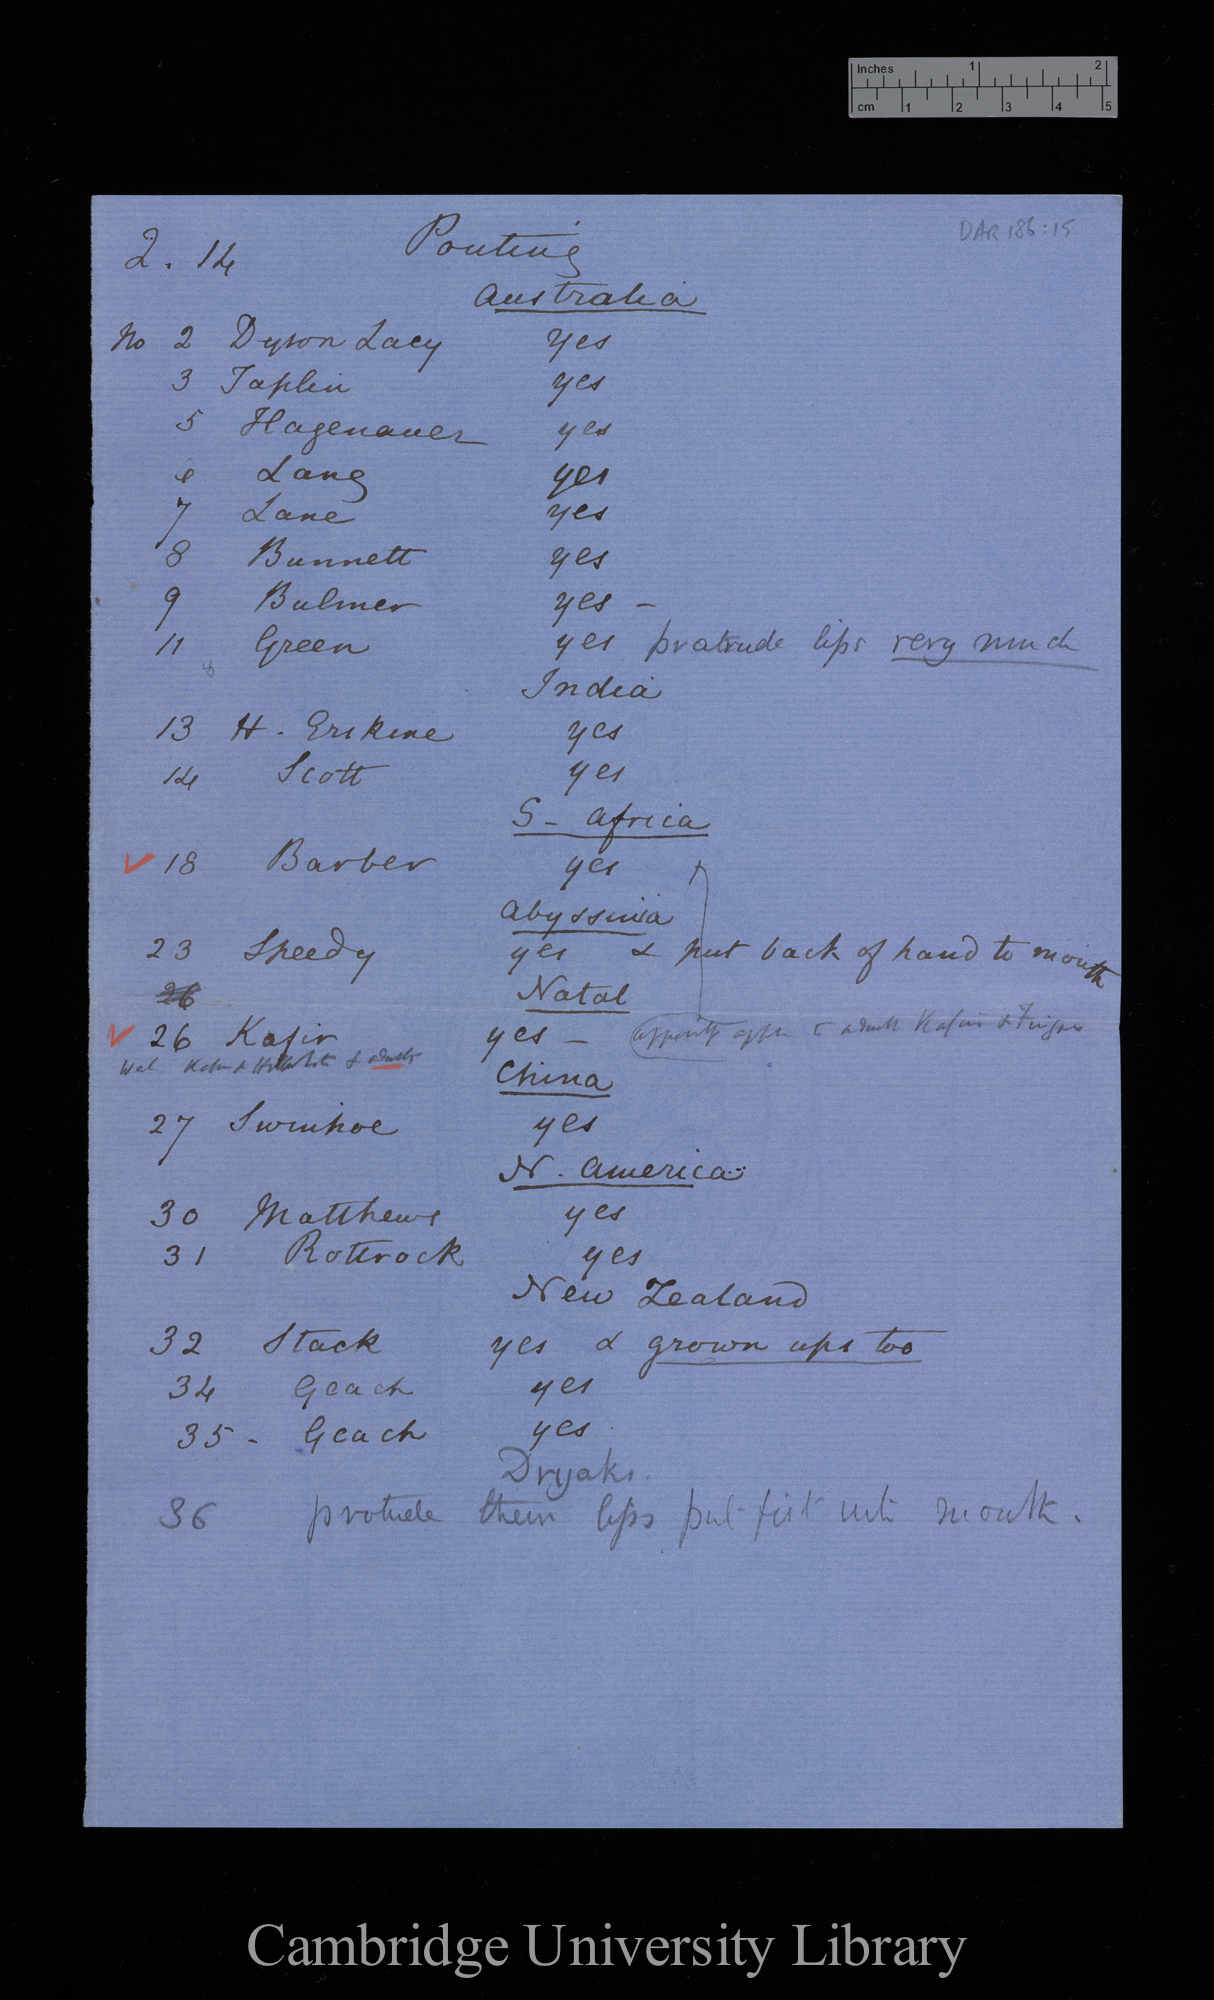 Inches 1 2
cm 1 2 3 4 5
DAR 186:15
2. 14 Pouting
Australia
No 2 Dyson Lacy yes
3 Taplin yes
5 Hagenauer yes
6 Lang yes
7 Lane yes
8 Bunnett yes
9 Bulmer yes –
11 Green yes protrude lips very much
India
13 H. Erskine yes
14 Scott yes
S – Africa
18 Barber yes
Abyssinia
23 Speedy yes & put back of hand to mouth
26 Natal
26 Kafir yes – apparently appn to adult Kafirs & Fingos
& adults
China
27 Swinhoe yes
N. America
30 Matthews yes
31 Rottrock yes
New Zealand
32 Stack yes & grown ups too
34 Geach yes
35 - Geach yes
Dryaks.
36 protrude their lips put fist into mouth.
Cambridge University Library